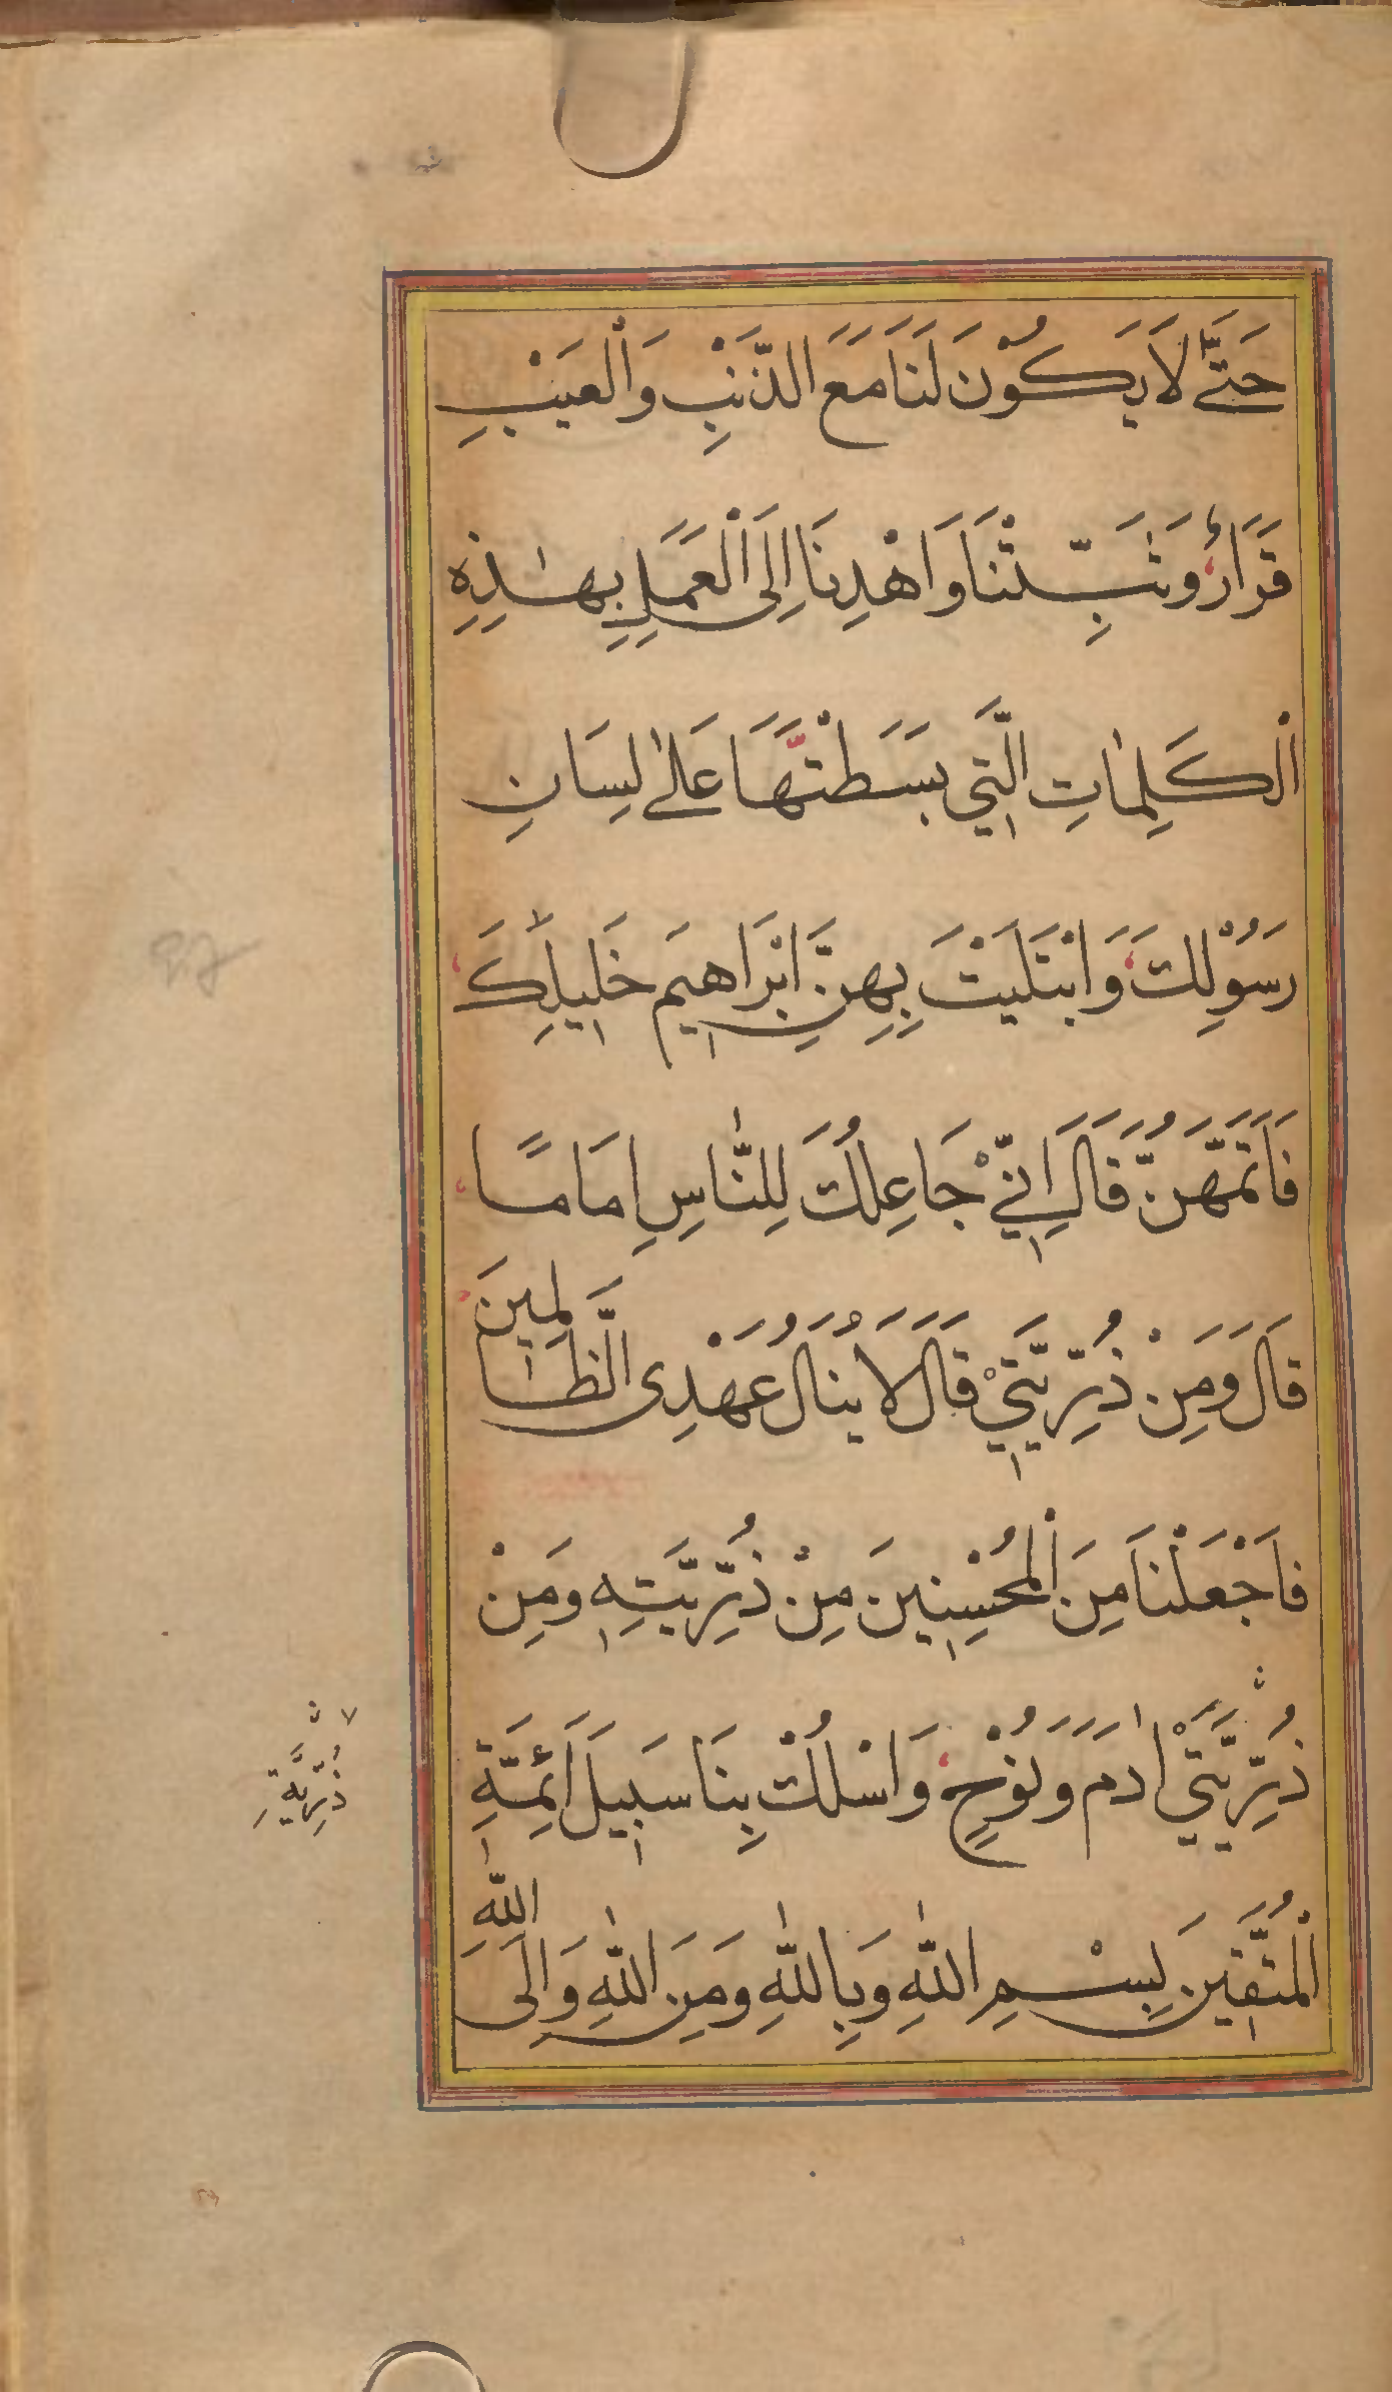 حَتَّى لَا يَكُوْنَ لَنَا مَعَ الذَّنْبِ وَالْعَيْبِ
قَرَارٌ وَثَبِّتْنَا وَاهْدِنَا اِلَى الْعَمَلِ بِهٰذِهِ
الْكَلِمَاتِ الَّتِي بَسَطْتَهَا عَلٰى لِسَانِ
رَسُوْلِكَ وَابْتَلَيْتَ بِهِنَّ اِبْرَاهِيمَ خَلِيلَكَ
فَاَتَمَّهُنَّ قَالَ اِنِّيْ جَاعِلُكَ لِلنَّاسِ اِمَامًا
قَالَ وَمِنْ ذُرِّيَّتِيْ قَالَ لَا يَنَالُ عَهْدِى الظَّالِمِينَ
فَاجْعَلْنَا مِنَ الْمُحْسِنِينَ مِنْ ذُرِّيَّتِهِ وَمِنْ
ذُرِّيَّتِيْ اٰدَمَ وَنُوْحٍ وَاسْلُكْ بِنَا سَبِيلَ اَئِمَّةِ
ذُرِّيَّةِ
الْمُتَّقِينَ بِسْمِ اللّٰهِ وَبِاللّٰهِ وَمِنَ اللّٰهِ وَاِلَى اللّٰهِ